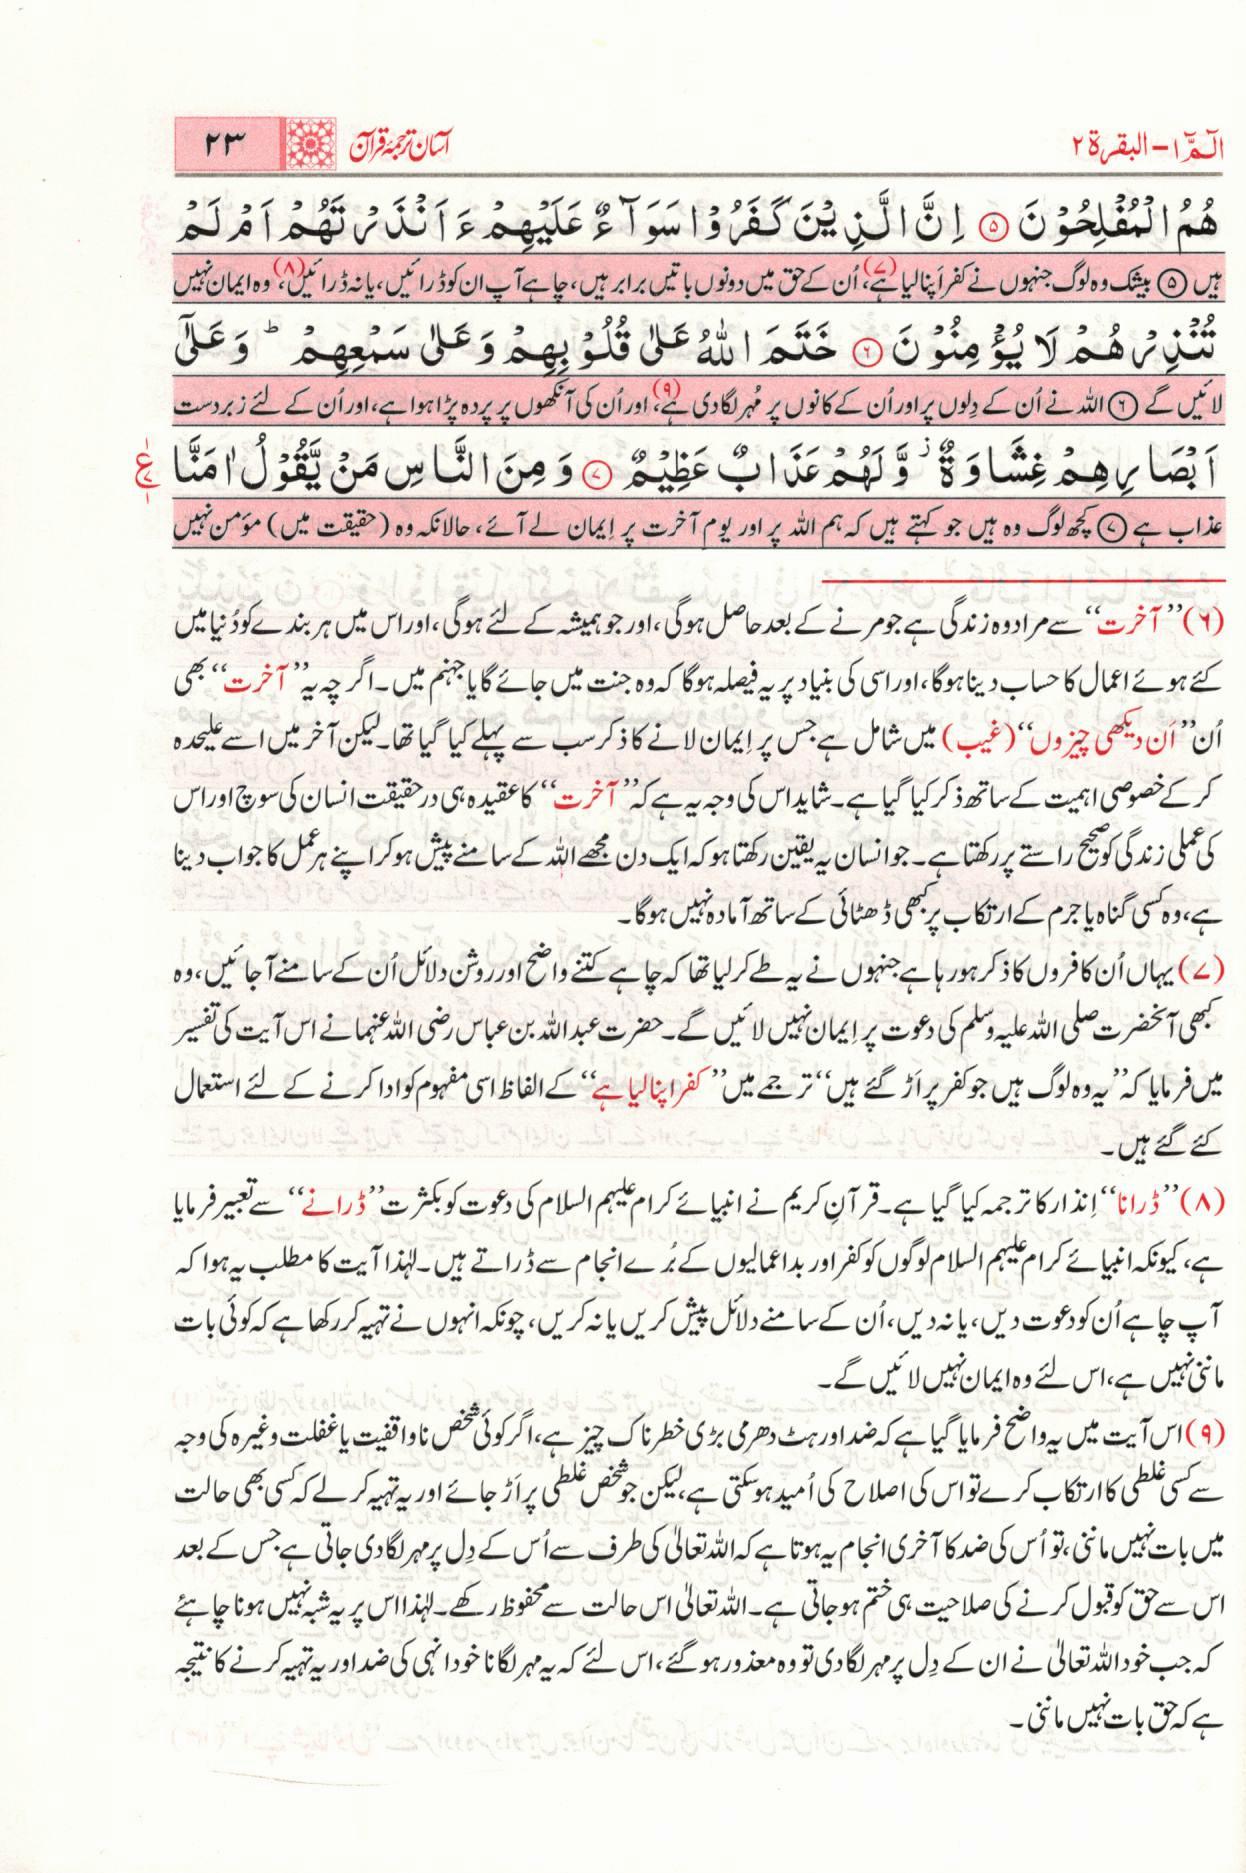 الٓمّٓ ۱ – البقرة ۲
آسان ترجمۂ قرآن
۲۳
هُمُ الْمُفْلِحُوْنَ ۵ اِنَّ الَّذِيْنَ كَفَرُوْا سَوَآءٌ عَلَيْهِمْ ءَاَنْذَرْتَهُمْ اَمْ لَمْ
ہیں ۵ بیشک وہ لوگ جنہوں نے کفر اَپنا لیا ہے، (۷) اُن کے حق میں دونوں باتیں برابر ہیں، چاہے آپ ان کو ڈرائیں، یا نہ ڈرائیں، (۸) وہ ایمان نہیں
تُنْذِرْهُمْ لَا يُؤْمِنُوْنَ ۶ خَتَمَ اللّٰهُ عَلٰى قُلُوْبِهِمْ وَعَلٰى سَمْعِهِمْ ؕ وَعَلٰٓى
لائیں گے ۶ اللہ نے اُن کے دِلوں پر اور اُن کے کانوں پر مُہر لگا دی ہے، (۹) اور اُن کی آنکھوں پر پردہ پڑا ہوا ہے، اور اُن کے لئے زبردست
اَبْصَارِهِمْ غِشَاوَةٌ ز وَّلَهُمْ عَذَابٌ عَظِيْمٌ ۷ وَمِنَ النَّاسِ مَنْ يَّقُوْلُ اٰمَنَّا
ع
عذاب ہے ۷ کچھ لوگ وہ ہیں جو کہتے ہیں کہ ہم اللہ پر اور یومِ آخرت پر اِیمان لے آئے، حالانکہ وہ (حقیقت میں) مؤمن نہیں
(۶) ’’آخرت‘‘ سے مراد وہ زندگی ہے جو مرنے کے بعد حاصل ہوگی، اور جو ہمیشہ کے لئے ہوگی، اور اس میں ہر بندے کو دُنیا میں
کئے ہوئے اعمال کا حساب دینا ہوگا، اور اسی کی بنیاد پر یہ فیصلہ ہوگا کہ وہ جنت میں جائے گا یا جہنم میں۔ اگر چہ یہ ’’آخرت‘‘ بھی
اُن ’’اَن دیکھی چیزوں‘‘ (غیب) میں شامل ہے جس پر اِیمان لانے کا ذکر سب سے پہلے کیا گیا تھا۔ لیکن آخر میں اسے علیحدہ
کر کے خصوصی اہمیت کے ساتھ ذکر کیا گیا ہے۔ شاید اس کی وجہ یہ ہے کہ ’’آخرت‘‘ کا عقیدہ ہی در حقیقت انسان کی سوچ اور اس
کی عملی زندگی کو صحیح راستے پر رکھتا ہے۔ جو انسان یہ یقین رکھتا ہو کہ ایک دن مجھے اللہ کے سامنے پیش ہو کر اپنے ہر عمل کا جواب دینا
ہے، وہ کسی گناہ یا جرم کے ارتکاب پر کبھی ڈھٹائی کے ساتھ آمادہ نہیں ہوگا۔
(۷) یہاں اُن کافروں کا ذکر ہو رہا ہے جنہوں نے یہ طے کر لیا تھا کہ چاہے کتنے واضح اور روشن دلائل اُن کے سامنے آجائیں، وہ
کبھی آنحضرت صلی اللہ علیہ وسلم کی دعوت پر اِیمان نہیں لائیں گے۔ حضرت عبداللہ بن عباس رضی اللہ عنہما نے اس آیت کی تفسیر
میں فرمایا کہ ’’یہ وہ لوگ ہیں جو کفر پر اَڑ گئے ہیں‘‘ ترجمے میں ’’کفر اپنا لیا ہے‘‘ کے الفاظ اسی مفہوم کو ادا کرنے کے لئے استعمال
کئے گئے ہیں۔
(۸) ’’ڈرانا‘‘ اِنذار کا ترجمہ کیا گیا ہے۔ قرآنِ کریم نے انبیائے کرام علیہم السلام کی دعوت کو بکثرت ’’ڈرانے‘‘ سے تعبیر فرمایا
ہے، کیونکہ انبیائے کرام علیہم السلام لوگوں کو کفر اور بداعمالیوں کے بُرے انجام سے ڈراتے ہیں۔ لہٰذا آیت کا مطلب یہ ہوا کہ
آپ چاہے اُن کو دعوت دیں، یا نہ دیں، اُن کے سامنے دلائل پیش کریں یا نہ کریں، چونکہ انہوں نے تہیہ کر رکھا ہے کہ کوئی بات
ماننی نہیں ہے، اس لئے وہ ایمان نہیں لائیں گے۔
(۹) اس آیت میں یہ واضح فرمایا گیا ہے کہ ضد اور ہٹ دھرمی بڑی خطرناک چیز ہے، اگر کوئی شخص ناواقفیت یا غفلت وغیرہ کی وجہ
سے کسی غلطی کا ارتکاب کرے تو اس کی اصلاح کی اُمید ہو سکتی ہے، لیکن جو شخص غلطی پر اَڑ جائے اور یہ تہیہ کر لے کہ کسی بھی حالت
میں بات نہیں ماننی، تو اُس کی ضد کا آخری انجام یہ ہوتا ہے کہ اللہ تعالیٰ کی طرف سے اُس کے دِل پر مہر لگا دی جاتی ہے جس کے بعد
اس سے حق کو قبول کرنے کی صلاحیت ہی ختم ہو جاتی ہے۔ اللہ تعالیٰ اس حالت سے محفوظ رکھے۔ لہٰذا اس پر یہ شبہ نہیں ہونا چاہئے
کہ جب خود اللہ تعالیٰ نے ان کے دِل پر مہر لگا دی تو وہ معذور ہو گئے، اس لئے کہ یہ مہر لگانا خود انہی کی ضد اور یہ تہیہ کرنے کا نتیجہ
ہے کہ حق بات نہیں ماننی۔